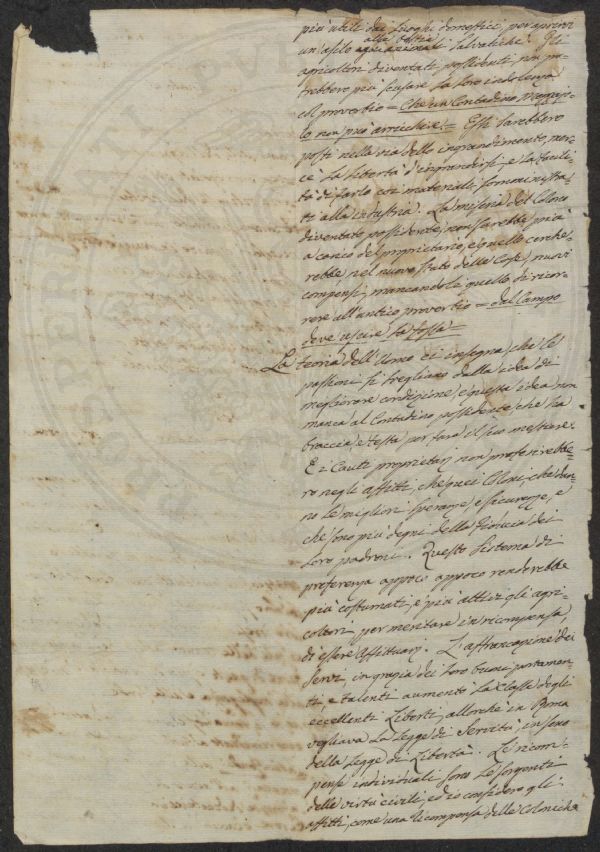 più utili dai luoghi domestici, per aprirvi
alle bestie
un asilo agli animali salvatiche. Gli
agricoltori diventati possidenti, non po-
trebbero più scusare la loro indolenza
col proverbio = Che un Contadino
lo non può arricchire. = Essi sarebbero
posti nella via dello ingrandimento, mer-
cè la libertà d'ingrandirsi, e la facili-
tà di farlo coi materiali somministra-
ti alla industria. La miseria del Colono
diventato possidente, non sarebbe più
a carico del proprietario, e quello cerche-
rebbe nel nuovo stato delle Cose, nuovi
compensi, mancandole quello di ricor-
rere all'antico proverbio = dal Campo
deve uscire la fossa =
La teoria dell'Uomo ci insegna, che le
passioni si svegliano dalla idea di
migliorare condizione, e questa idea non
manca al Contadino possidente, che ha
braccia, e testa per fare il suo mestiere.
E i Cauti proprietarj non preferirebbe-
ro negli affitti, che quei Coloni, che dan-
no le migliori speranze, e sicurezze, e
che sono più degni della fiducia dei
loro padroni. Questo sistema di
preferenza appoco appoco renderebbe
più costumati, e più attivi gli agri-
coltori, per meritare in ricompensa,
di essere affittuarj. L'affrancazione dei
servi, in grazia dei loro buoni portamen-
ti, e talenti aumentò la classe degli
eccellenti Liberti, allorchè in Roma
vegliava la legge di servitù, in seno
della legge di Libertà. Le ricom-
pense individuali sono le sorgenti
delle virtù civili, ed io considero gli
affitti, come una ricompensa delle Coloniche